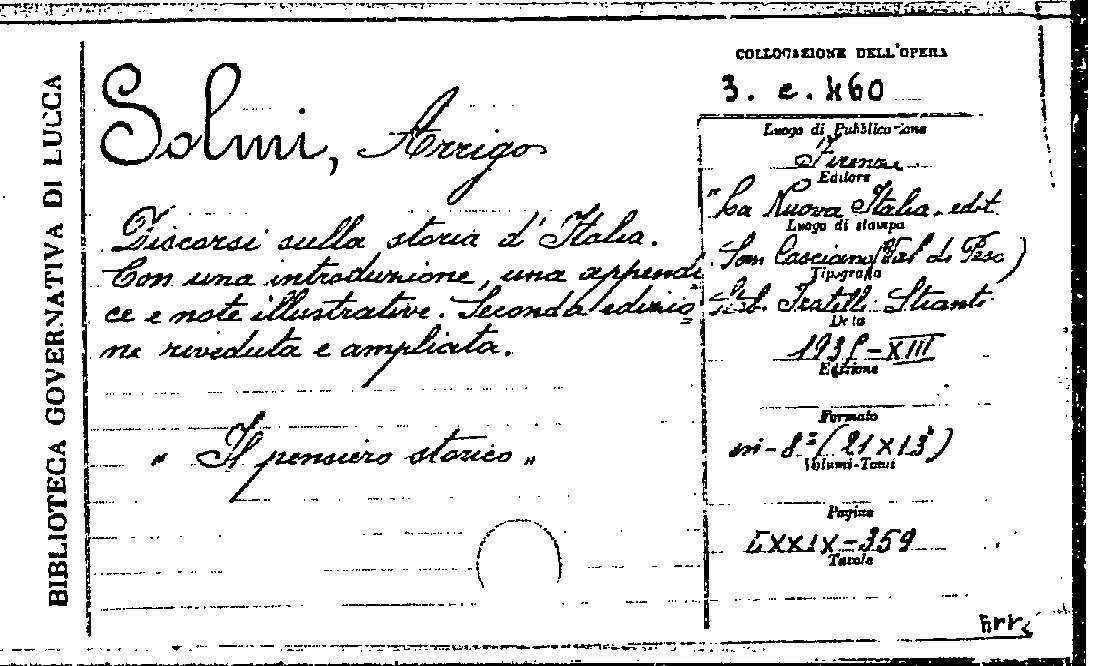 BIBLIOTECA GOVERNATIVA DI LUCCA
COLLOCAZIONE DELL'OPERA
3. e. 460
Solmi, Arrigo
Discorsi sulla storia d'Italia.
Con una introduzione, una appendi
ce e note illustrative. Seconda edizio=
ne riveduta e ampliata.
" Il pensiero storico "
Luogo di Pubblicazione
Firenze
Editore
"La Nuova Italia" edit.
Luogo di stampa
San Casciano (Val di Pesa)
Tipografia
Fratelli Stianti
Data
1935-XIII
Edizione
Formato
in-8° (21x13)
Volumi-Tomi
Pagine
LXXIX-359
Tavole